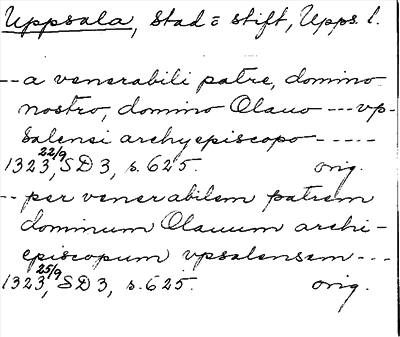 Uppsala, stad o stift, Upps. l.
--a venerabili patre, domino
nostro, domino Olauo --- vp-
salensi archyepiscopo -----
1323 22/9, SD 3, s. 625. orig.
-- per venerabilem patrem
dominum Olauum archi-
episcopum vpsalensem ---
1323 25/9, SD 3, s. 625. orig.